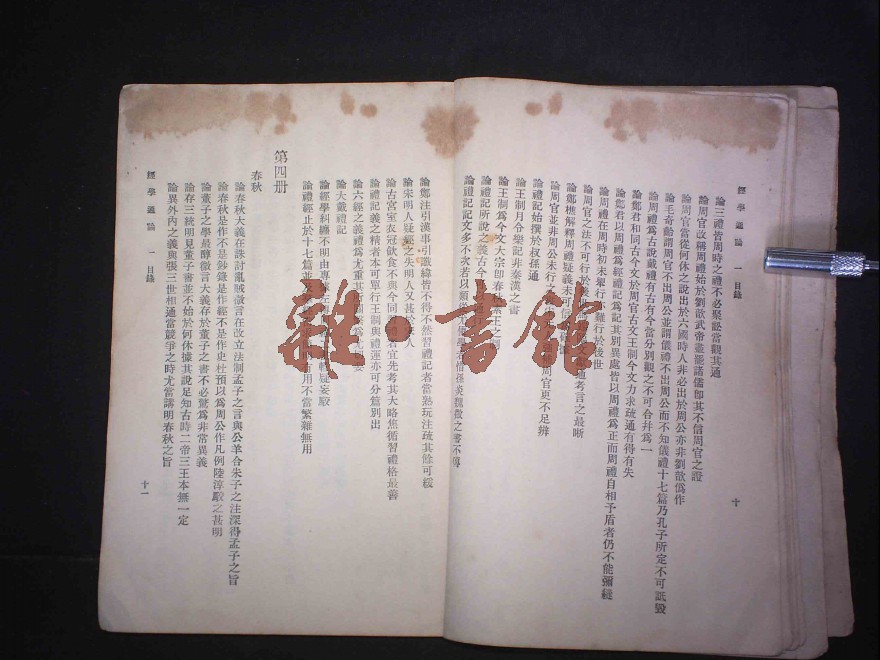 經學通論 一 目錄
十
論三禮皆周時之禮不必聚訟當觀其通
論周官改稱周禮始於劉歆武帝盡罷諸儒即其不信周官之證
論周官當從何休之說出於六國時人非必出於周公亦非劉歆僞作
論毛奇齡謂周官不出周公並謂儀禮不出周公而不知儀禮十七篇乃孔子所定不可詆毀
論周禮爲古說戴禮有古有今當分別觀之不可合并爲一
論鄭君和同古今文於周官古文王制今文力求疏通有得有失
論鄭君以周禮爲經禮記爲記其別異處皆以周禮爲正而周禮自相矛盾者仍不能彌縫
論周禮在周時初未舉行亦難行於後世
論周官之法不可行於後世 考言之最晰
論鄭樵解釋周禮疑義未可信
論周官並非周公未行之 周官更不足辨
論禮記始撰於叔孫通
論王制月令樂記非秦漢之書
論王制爲今文大宗即春秋素王之制
論禮記所說之義古今
論禮記記文多不次若以類 孫炎魏徵之書不傳
論鄭注引漢事引讖緯皆不得不然習禮記者當熟玩注疏其餘可緩
論宋明人疑經之失明人又甚於宋人
論古宮室衣冠飲食不與今同 宜先考其大略焦循習禮格最善
論禮記義之精者本可單行王制與禮運亦可分篇別出
論六經之義禮爲尤重其
論大戴禮記
論經學糾纏不明由專 輕疑妄駁
論禮經止於十七篇並 用不當繁雜無用
第四册
春秋
論春秋大義在誅討亂賊微言在改立法制孟子之言與公羊合朱子之注深得孟子之旨
論春秋是作不是鈔錄是作經不是作史杜預以爲周公作凡例陸淳駁之甚明
論董子之學最醇微言大義存於董子之書不必驚爲非常異義
論存三統明見董子書並不始於何休據其說足知古時二帝三王本無一定
論異外內之義與張三世相通當競爭之時尤當講明春秋之旨
經學通論 一 目錄
十一
雜·書館